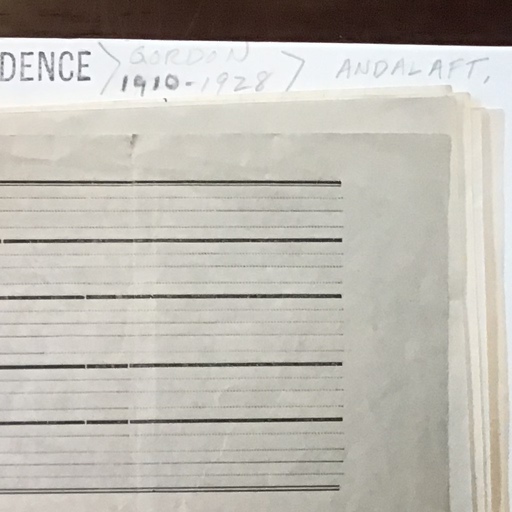 DENCE > GORDON
1910-1928 >
ANDALAFT,